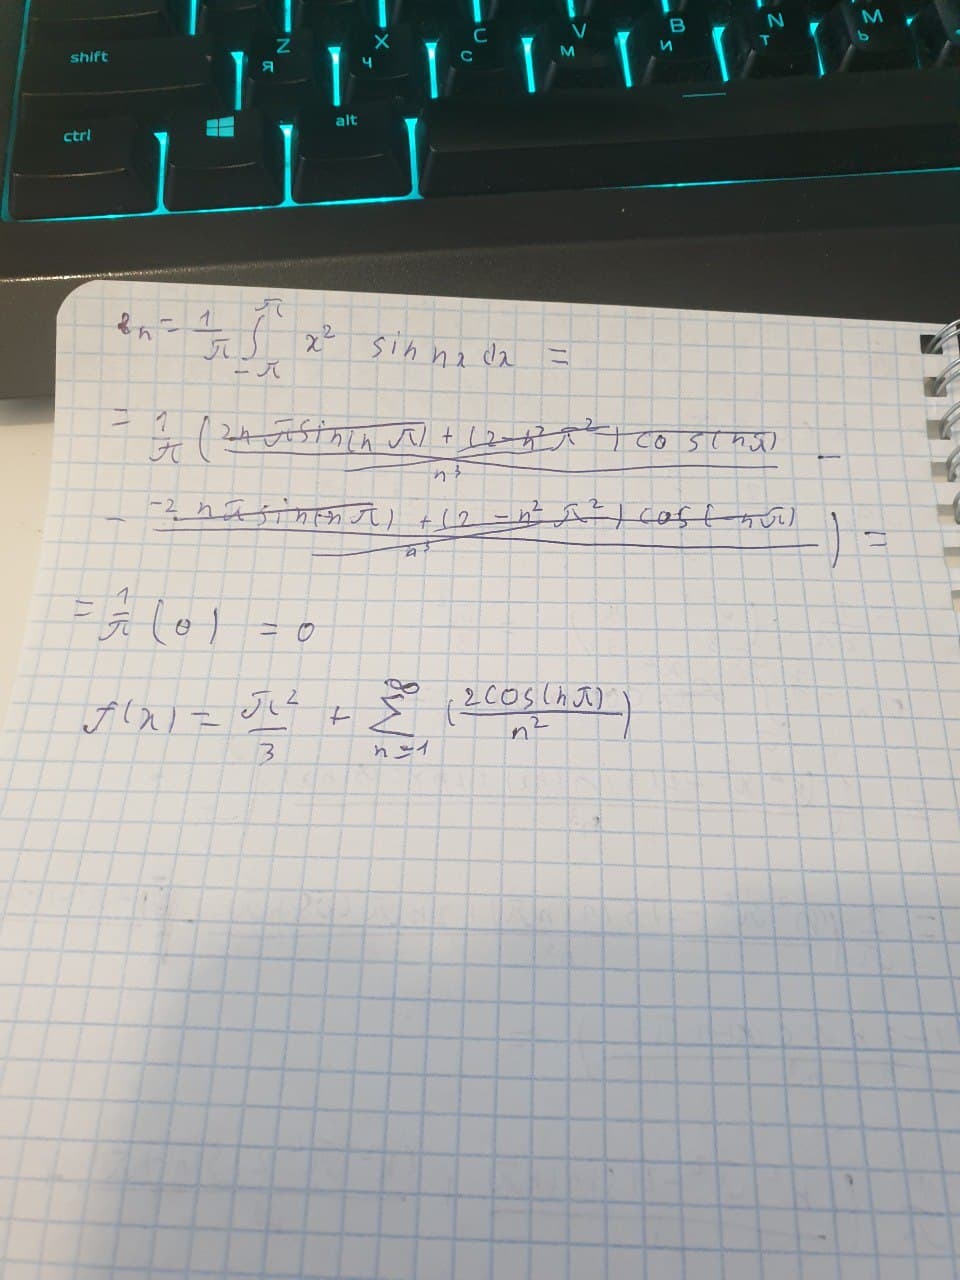 shift Z Я X Ч C С V М B И N Т M Ь
ctrl alt
bₙ = 1/π ∫_{-π}^{π} x² sin nx dx =
= 1/π ( (2nπsin(nπ) + (2-n²π²) cos(nπ))/n³ -
- (-2nπsin(-nπ) + (2-n²π²) cos(-nπ))/n³ ) =
= 1/π (0) = 0
f(x) = π²/3 + ∑_{n=1}^{∞} (2cos(nπ)/n²)